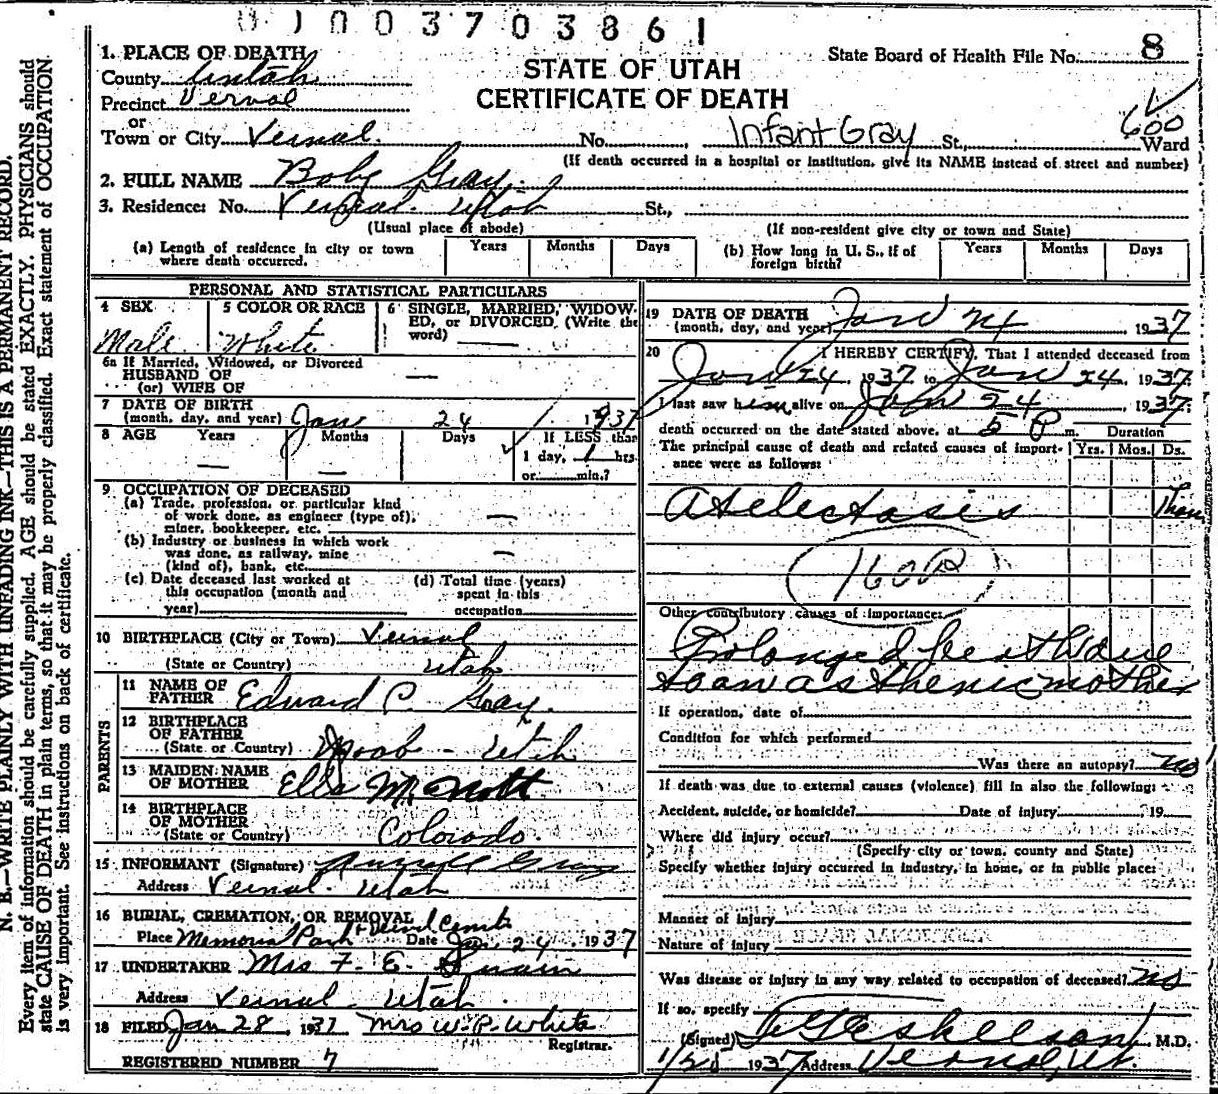 0100370386 1
1. PLACE OF DEATH
County Uintah
Precinct Vernal
or
Town or City Vernal. No. , Infant Gray St., Ward
600
STATE OF UTAH
CERTIFICATE OF DEATH
State Board of Health File No. 8
(If death occurred in a hospital or institution, give its NAME instead of street and number)
2. FULL NAME Baby Gray.
3. Residence: No. Vernal. Utah St.,
(Usual place of abode) (If non-resident give city or town and State)
(a) Length of residence in city or town where death occurred. Years Months Days
(b) How long in U. S., if of foreign birth? Years Months Days
PERSONAL AND STATISTICAL PARTICULARS
4 SEX
Male
5 COLOR OR RACE
White
6 SINGLE, MARRIED, WIDOWED, or DIVORCED, (Write the word) —
6a If Married, Widowed, or Divorced
HUSBAND OF —
(or) WIFE OF
7 DATE OF BIRTH
(month, day, and year) Jan 24 1937
8 AGE Years Months Days If LESS than
— — 1 day, 1 hrs.
or min.?
9 OCCUPATION OF DECEASED
(a) Trade, profession, or particular kind
of work done, as engineer (type of),
miner, bookkeeper, etc. —
(b) Industry or business in which work
was done, as railway, mine
(kind of), bank, etc. —
(c) Date deceased last worked at
this occupation (month and
year)
(d) Total time (years)
spent in this
occupation
10 BIRTHPLACE (City or Town) Vernal
(State or Country) Utah
PARENTS
11 NAME OF
FATHER Edward C. Gray.
12 BIRTHPLACE
OF FATHER
(State or Country) Moab - Utah
13 MAIDEN NAME
OF MOTHER Ella McNott
14 BIRTHPLACE
OF MOTHER
(State or Country) Colorado.
15 INFORMANT (Signature) Gray
Address Vernal. Utah
16 BURIAL, CREMATION, OR REMOVAL
Place Memorial Park Date Jan. 24 1937
17 UNDERTAKER Mrs F. E. Swain
Address Vernal - Utah.
18 FILED Jan 28, 1937 Mrs W. P. White
Registrar.
REGISTERED NUMBER 7
19 DATE OF DEATH
(month, day, and year) Jan 24 1937
20 I HEREBY CERTIFY, That I attended deceased from
Jan 24 1937 to Jan 24, 1937
I last saw him alive on Jan 24, 1937
death occurred on the date stated above, at 5 P m. Duration
The principal cause of death and related causes of importance were as follows: Yrs. Mos. Ds.
Atelectasis 1 hour
160B
Other contributory causes of importance:
Prolonged birth due
to an asthenic mother
If operation, date of
Condition for which performed
Was there an autopsy? no
If death was due to external causes (violence) fill in also the following:
Accident, suicide, or homicide? Date of injury , 19
Where did injury occur?
(Specify city or town, county and State)
Specify whether injury occurred in industry, in home, or in public place:
Manner of injury
Nature of injury
Was disease or injury in any way related to occupation of deceased? no
If so, specify
(Signed) Eskelson, M.D.
1/25 1937 Address Vernal, Ut.
N. B.—WRITE PLAINLY WITH UNFADING INK—THIS IS A PERMANENT RECORD.
Every item of information should be carefully supplied. AGE should be stated EXACTLY. PHYSICIANS should
state CAUSE OF DEATH in plain terms, so that it may be properly classified. Exact statement of OCCUPATION
is very important. See instructions on back of certificate.